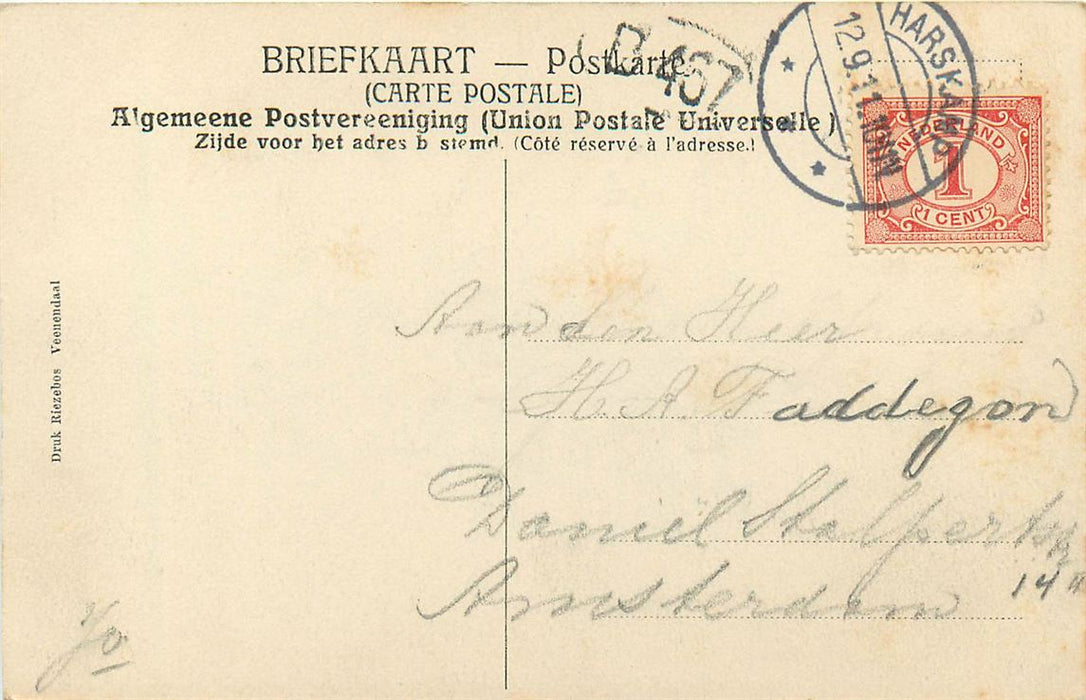 BRIEFKAART — Postkarte
(CARTE POSTALE)
Algemeene Postvereeniging (Union Postale Universelle)
Zijde voor het adres b stemd. (Côté réservé à l'adresse.)
B 467
HARSKAMP
12.9.11.
NEDERLAND
1
1 CENT
Aan den Heer
H. A. Faddegon
Daniël Stalpertstr
14 II
Amsterdam
Jo
Druk Riezebos Veenendaal